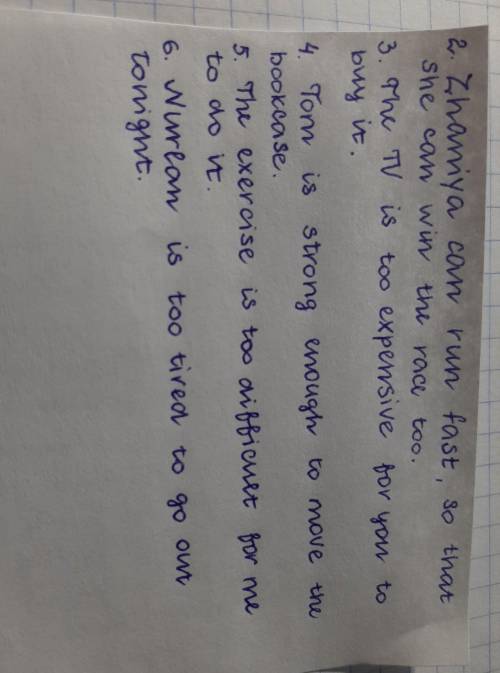 2. Zhaniya can run fast, so that
she can win the race too.
3. The TV is too expensive for you to
buy it.
4. Tom is strong enough to move the
bookcase.
5. The exercise is too difficult for me
to do it.
6. Nurlan is too tired to go out
tonight.